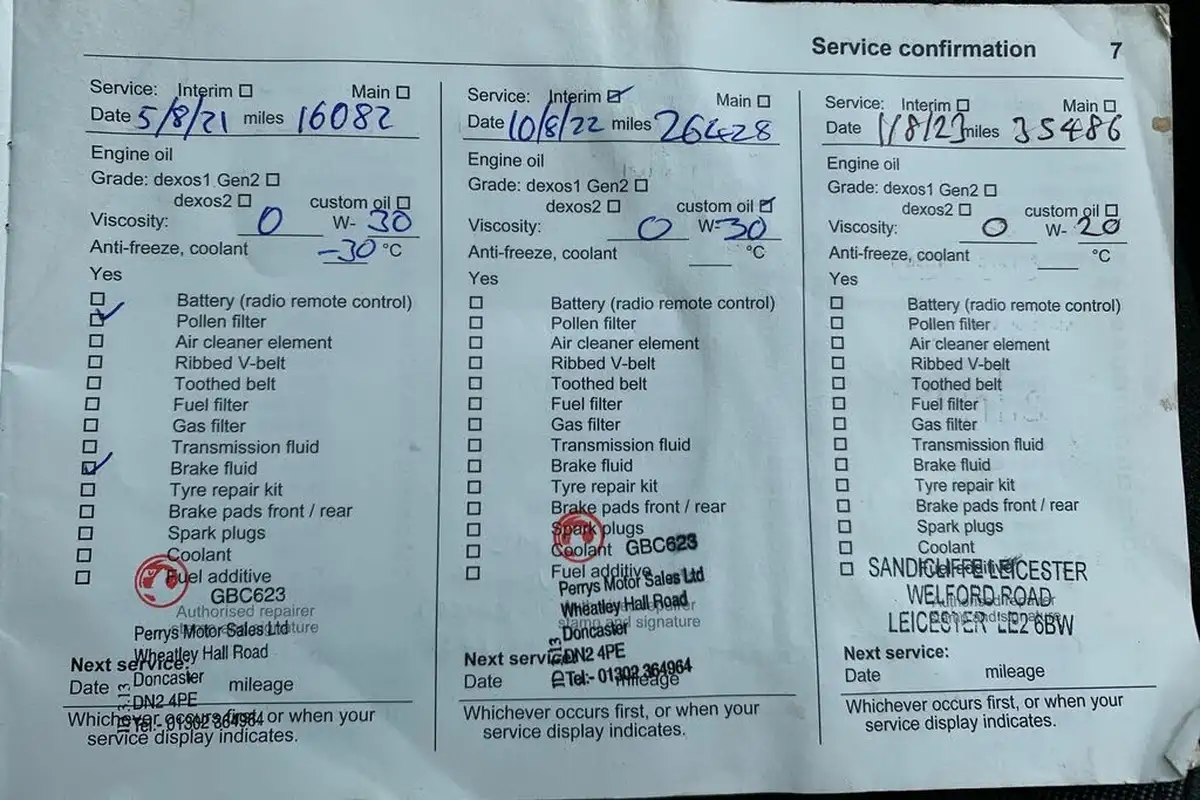 Service confirmation 7
Service: Interim ☐ Main ☐
Date 5/8/21 miles 16082
Engine oil
Grade: dexos1 Gen2 ☐
dexos2 ☐ custom oil ☐
Viscosity: 0 W- 30
Anti-freeze, coolant -30 °C
Yes
☐ Battery (radio remote control)
☑ Pollen filter
☐ Air cleaner element
☐ Ribbed V-belt
☐ Toothed belt
☐ Fuel filter
☐ Gas filter
☐ Transmission fluid
☑ Brake fluid
☐ Tyre repair kit
☐ Brake pads front / rear
☐ Spark plugs
☐ Coolant
☐ Fuel additive
GBC623
Authorised repairer
stamp and signature
Perrys Motor Sales Ltd
Wheatley Hall Road
Doncaster
DN2 4PE
Tel:- 01302 364964
Next service:
Date mileage
Whichever occurs first, or when your
service display indicates.
Service: Interim ☑ Main ☐
Date 10/8/22 miles 26428
Engine oil
Grade: dexos1 Gen2 ☐
dexos2 ☐ custom oil ☑
Viscosity: 0 W- 30
Anti-freeze, coolant °C
Yes
☐ Battery (radio remote control)
☐ Pollen filter
☐ Air cleaner element
☐ Ribbed V-belt
☐ Toothed belt
☐ Fuel filter
☐ Gas filter
☐ Transmission fluid
☐ Brake fluid
☐ Tyre repair kit
☐ Brake pads front / rear
☐ Spark plugs
☐ Coolant
☐ Fuel additive
GBC623
Perrys Motor Sales Ltd
Wheatley Hall Road
stamp and signature
Doncaster
DN2 4PE
Tel:- 01302 364964
Next service:
Date mileage
Whichever occurs first, or when your
service display indicates.
Service: Interim ☐ Main ☐
Date 1/8/23 miles 35486
Engine oil
Grade: dexos1 Gen2 ☐
dexos2 ☐ custom oil ☐
Viscosity: 0 W- 20
Anti-freeze, coolant °C
Yes
☐ Battery (radio remote control)
☐ Pollen filter
☐ Air cleaner element
☐ Ribbed V-belt
☐ Toothed belt
☐ Fuel filter
☐ Gas filter
☐ Transmission fluid
☐ Brake fluid
☐ Tyre repair kit
☐ Brake pads front / rear
☐ Spark plugs
☐ Coolant
☐ Fuel additive
SANDICLIFFE LEICESTER
WELFORD ROAD
LEICESTER LE2 6BW
Authorised repairer
stamp and signature
Next service:
Date mileage
Whichever occurs first, or when your
service display indicates.